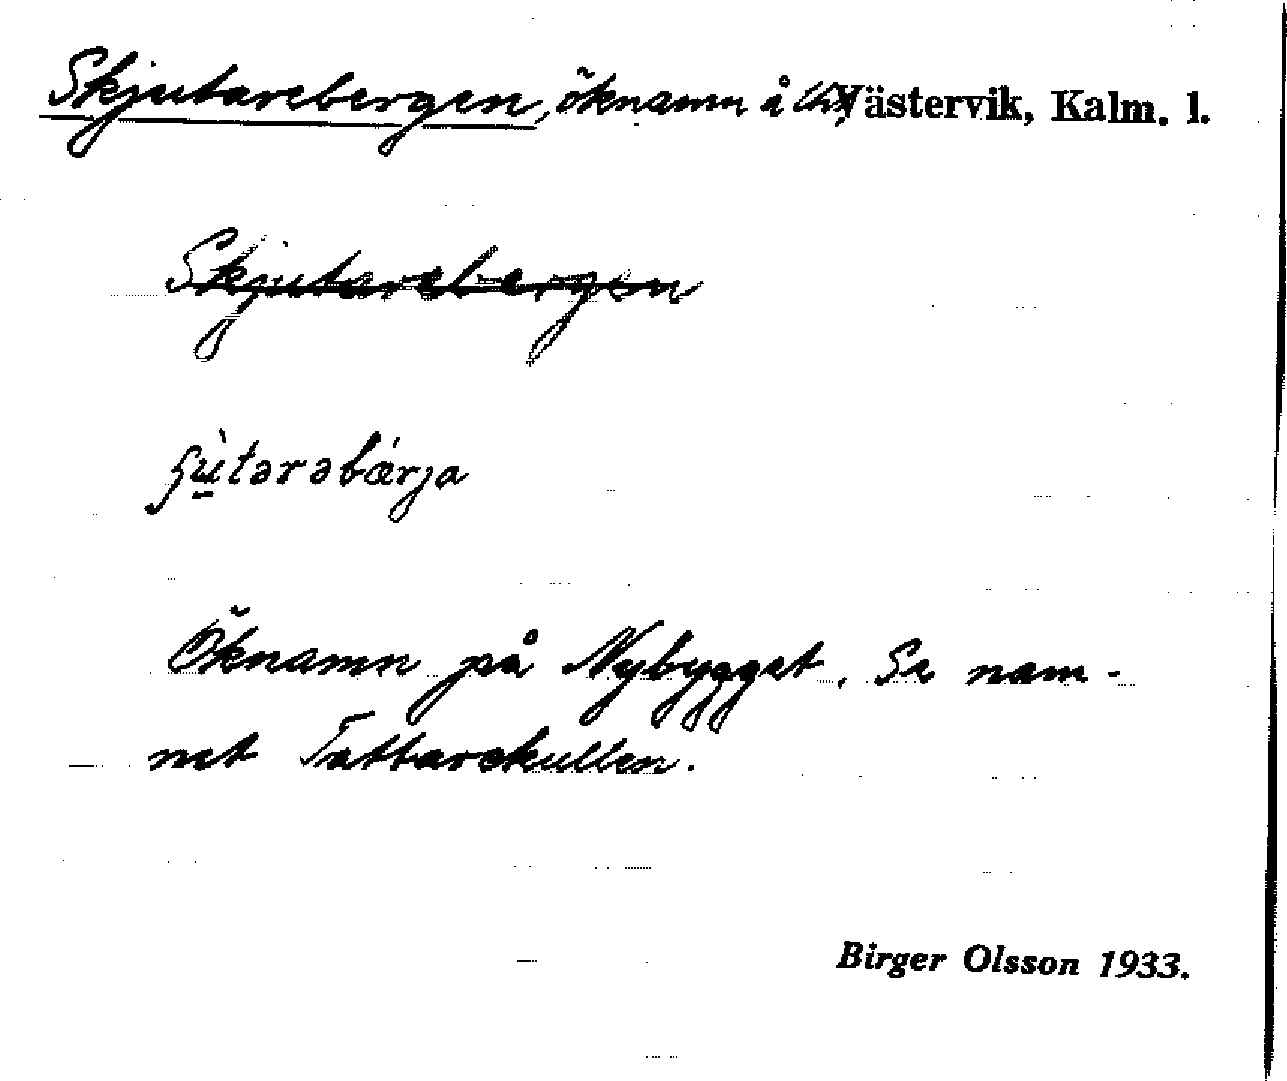 Skjutarebergen, öknamn å Västervik, Kalm. l.
Skjutarebergen
Öknamn på Nybygget. Se nam-
net Tattarekullen.
Birger Olsson 1933.